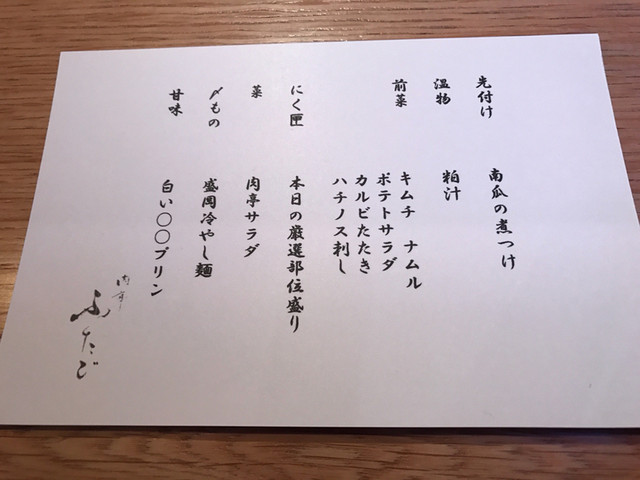 先付け　南瓜の煮つけ
温物　粕汁
前菜　キムチ　ナムル
ポテトサラダ
カルビたたき
ハチノス刺し
にく匣　本日の厳選部位盛り
菜　肉亭サラダ
〆もの　盛岡冷やし麺
甘味　白い〇〇プリン
肉亭
ふたご